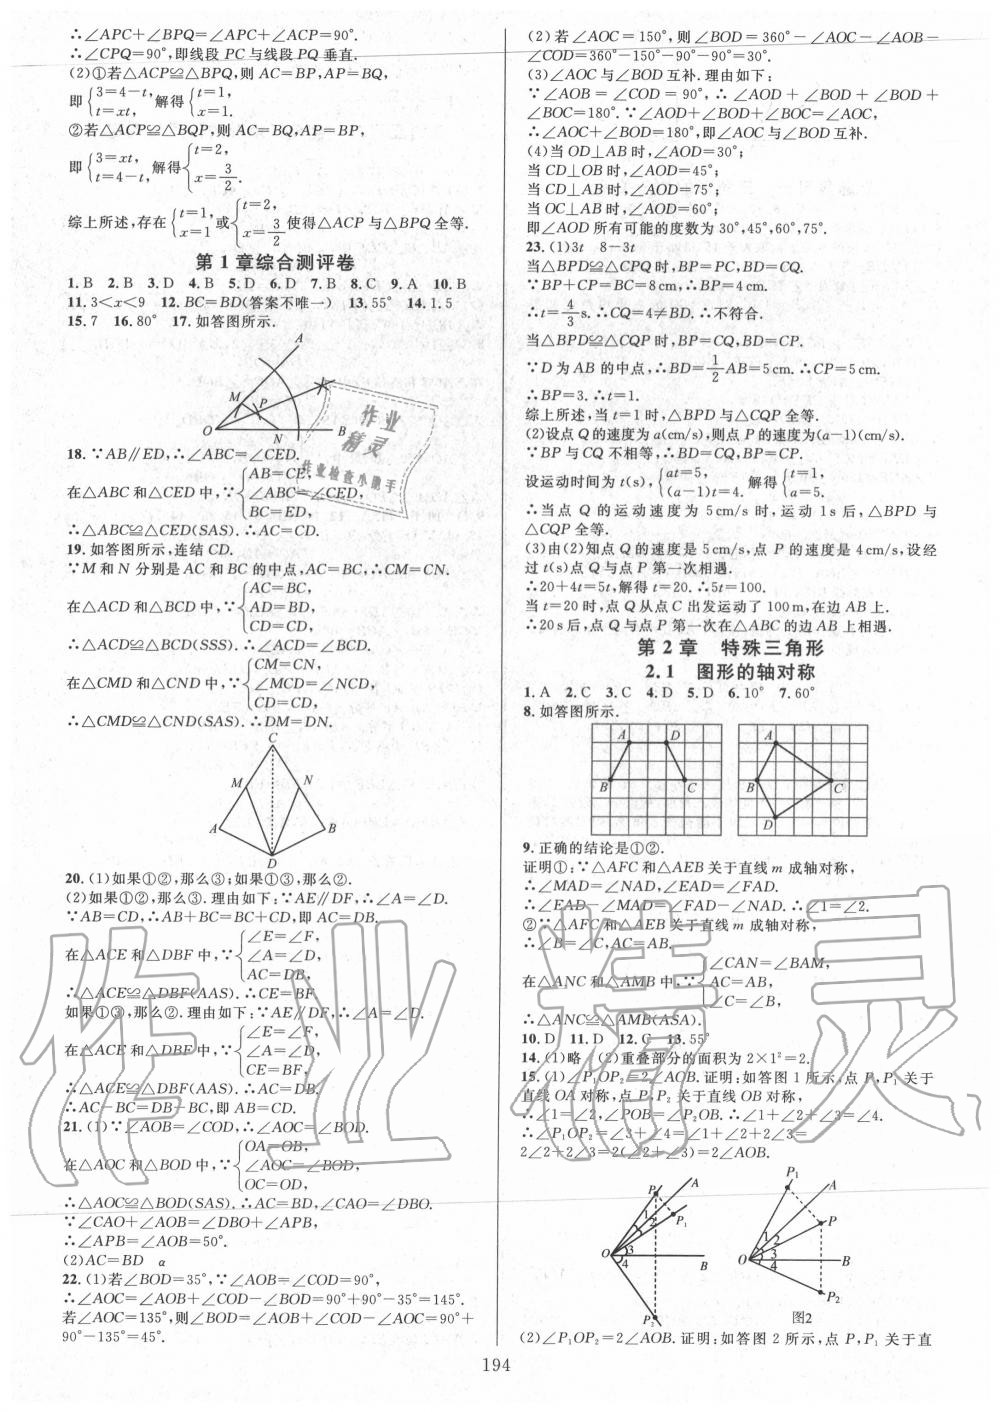 ∴∠APC+∠BPQ=∠APC+∠ACP=90°.
∴∠CPQ=90°,即线段 PC 与线段 PQ 垂直.
(2)①若△ACP≌△BPQ,则 AC=BP,AP=BQ,
即{3=4-t, t=xt, 解得{t=1, x=1.
②若△ACP≌△BQP,则 AC=BQ,AP=BP,
即{3=xt, t=4-t, 解得{t=2, x=3/2.
综上所述,存在{t=1, x=1 或{t=2, x=3/2 使得△ACP 与△BPQ 全等.
第 1 章综合测评卷
1.B 2.B 3.D 4.B 5.D 6.D 7.B 8.C 9.A 10.B
11.3<x<9 12.BC=BD(答案不唯一) 13.55° 14.1.5
15.7 16.80° 17.如答图所示.
A
M
P
O
N
B
18.∵AB∥ED,∴∠ABC=∠CED.
在△ABC 和△CED 中,∵{AB=CE, ∠ABC=∠CED, BC=ED,
∴△ABC≌△CED(SAS).∴AC=CD.
19.如答图所示,连结 CD.
∵M 和 N 分别是 AC 和 BC 的中点,AC=BC,∴CM=CN.
在△ACD 和△BCD 中,∵{AC=BC, AD=BD, CD=CD,
∴△ACD≌△BCD(SSS).∴∠ACD=∠BCD.
在△CMD 和△CND 中,∵{CM=CN, ∠MCD=∠NCD, CD=CD,
∴△CMD≌△CND(SAS).∴DM=DN.
C
M
N
A
B
D
20.(1)如果①②,那么③;如果①③,那么②.
(2)如果①②,那么③.理由如下:∵AE∥DF,∴∠A=∠D.
∵AB=CD,∴AB+BC=BC+CD,即 AC=DB.
在△ACE 和△DBF 中,∵{∠E=∠F, ∠A=∠D, AC=DB,
∴△ACE≌△DBF(AAS).∴CE=BF.
如果①③,那么②.理由如下:∵AE∥DF,∴∠A=∠D.
在△ACE 和△DBF 中,∵{∠E=∠F, ∠A=∠D, CE=BF,
∴△ACE≌△DBF(AAS).∴AC=DB.
∴AC-BC=DB-BC,即 AB=CD.
21.(1)∵∠AOB=∠COD,∴∠AOC=∠BOD.
在△AOC 和△BOD 中,∵{OA=OB, ∠AOC=∠BOD, OC=OD,
∴△AOC≌△BOD(SAS).∴AC=BD,∠CAO=∠DBO.
∵∠CAO+∠AOB=∠DBO+∠APB,
∴∠APB=∠AOB=50°.
(2)AC=BD α
22.(1)若∠BOD=35°,∵∠AOB=∠COD=90°,
∴∠AOC=∠AOB+∠COD-∠BOD=90°+90°-35°=145°.
若∠AOC=135°,则∠BOD=∠AOB+∠COD-∠AOC=90°+
90°-135°=45°.
(2)若∠AOC=150°,则∠BOD=360°-∠AOC-∠AOB-
∠COD=360°-150°-90°-90°=30°.
(3)∠AOC 与∠BOD 互补.理由如下:
∵∠AOB=∠COD=90°,∴∠AOD+∠BOD+∠BOD+
∠BOC=180°.∵∠AOD+∠BOD+∠BOC=∠AOC,
∴∠AOC+∠BOD=180°,即∠AOC 与∠BOD 互补.
(4)当 OD⊥AB 时,∠AOD=30°;
当 CD⊥OB 时,∠AOD=45°;
当 CD⊥AB 时,∠AOD=75°;
当 OC⊥AB 时,∠AOD=60°;
即∠AOD 所有可能的度数为 30°,45°,60°,75°.
23.(1)3t 8-3t
当△BPD≌△CPQ 时,BP=PC,BD=CQ.
∵BP+CP=BC=8 cm,∴BP=4 cm.
∴t=4/3 s.∴CQ=4≠BD.∴不符合.
当△BPD≌△CQP 时,BP=CQ,BD=CP.
∵D 为 AB 的中点,∴BD=1/2AB=5 cm.∴CP=5 cm.
∴BP=3.∴t=1.
综上所述,当 t=1 时,△BPD 与△CQP 全等.
(2)设点 Q 的速度为 a(cm/s),则点 P 的速度为(a-1)(cm/s).
∵BP 与 CQ 不相等,∴BD=CQ,BP=CP.
设运动时间为 t(s),{at=5, (a-1)t=4. 解得{t=1, a=5.
∴当点 Q 的运动速度为 5 cm/s 时,运动 1s 后,△BPD 与
△CQP 全等.
(3)由(2)知点 Q 的速度是 5 cm/s,点 P 的速度是 4 cm/s,设经
过 t(s)点 Q 与点 P 第一次相遇.
∴20+4t=5t,解得 t=20.∴5t=100.
当 t=20 时,点 Q 从点 C 出发运动了 100 m,在边 AB 上.
∴20 s 后,点 Q 与点 P 第一次在△ABC 的边 AB 上相遇.
第 2 章 特殊三角形
2.1 图形的轴对称
1.A 2.C 3.C 4.D 5.D 6.10° 7.60°
8.如答图所示.
A D B C
A B C D
9.正确的结论是①②.
证明①:∵△AFC 和△AEB 关于直线 m 成轴对称,
∴∠MAD=∠NAD,∠EAD=∠FAD.
∴∠EAD-∠MAD=∠FAD-∠NAD.∴∠1=∠2.
②∵△AFC 和△AEB 关于直线 m 成轴对称,
∴∠B=∠C,AC=AB.
在△ANC 和△AMB 中,∵{∠CAN=∠BAM, AC=AB, ∠C=∠B,
∴△ANC≌△AMB(ASA).
10.D 11.D 12.C 13.55°
14.(1)略 (2)重叠部分的面积为 2×1²=2.
15.(1)∠P₁OP₂=2∠AOB.证明:如答图 1 所示,点 P,P₁关于
直线 OA 对称,点 P,P₂关于直线 OB 对称,
∴∠1=∠2,∠POB=∠P₂OB.∴∠1+∠2+∠3=∠4.
∴∠P₁OP₂=∠3+∠4=∠1+∠2+2∠3=
2∠2+2∠3=2(∠2+∠3)=2∠AOB.
P A P₁ 1 2 3 4 O B P₂
P₁ A P 1 2 3 4 O B P₂
图2
(2)∠P₁OP₂=2∠AOB.证明:如答图 2 所示,点 P,P₁关于直
194
作业
精灵
作业检查小助手
作业精灵